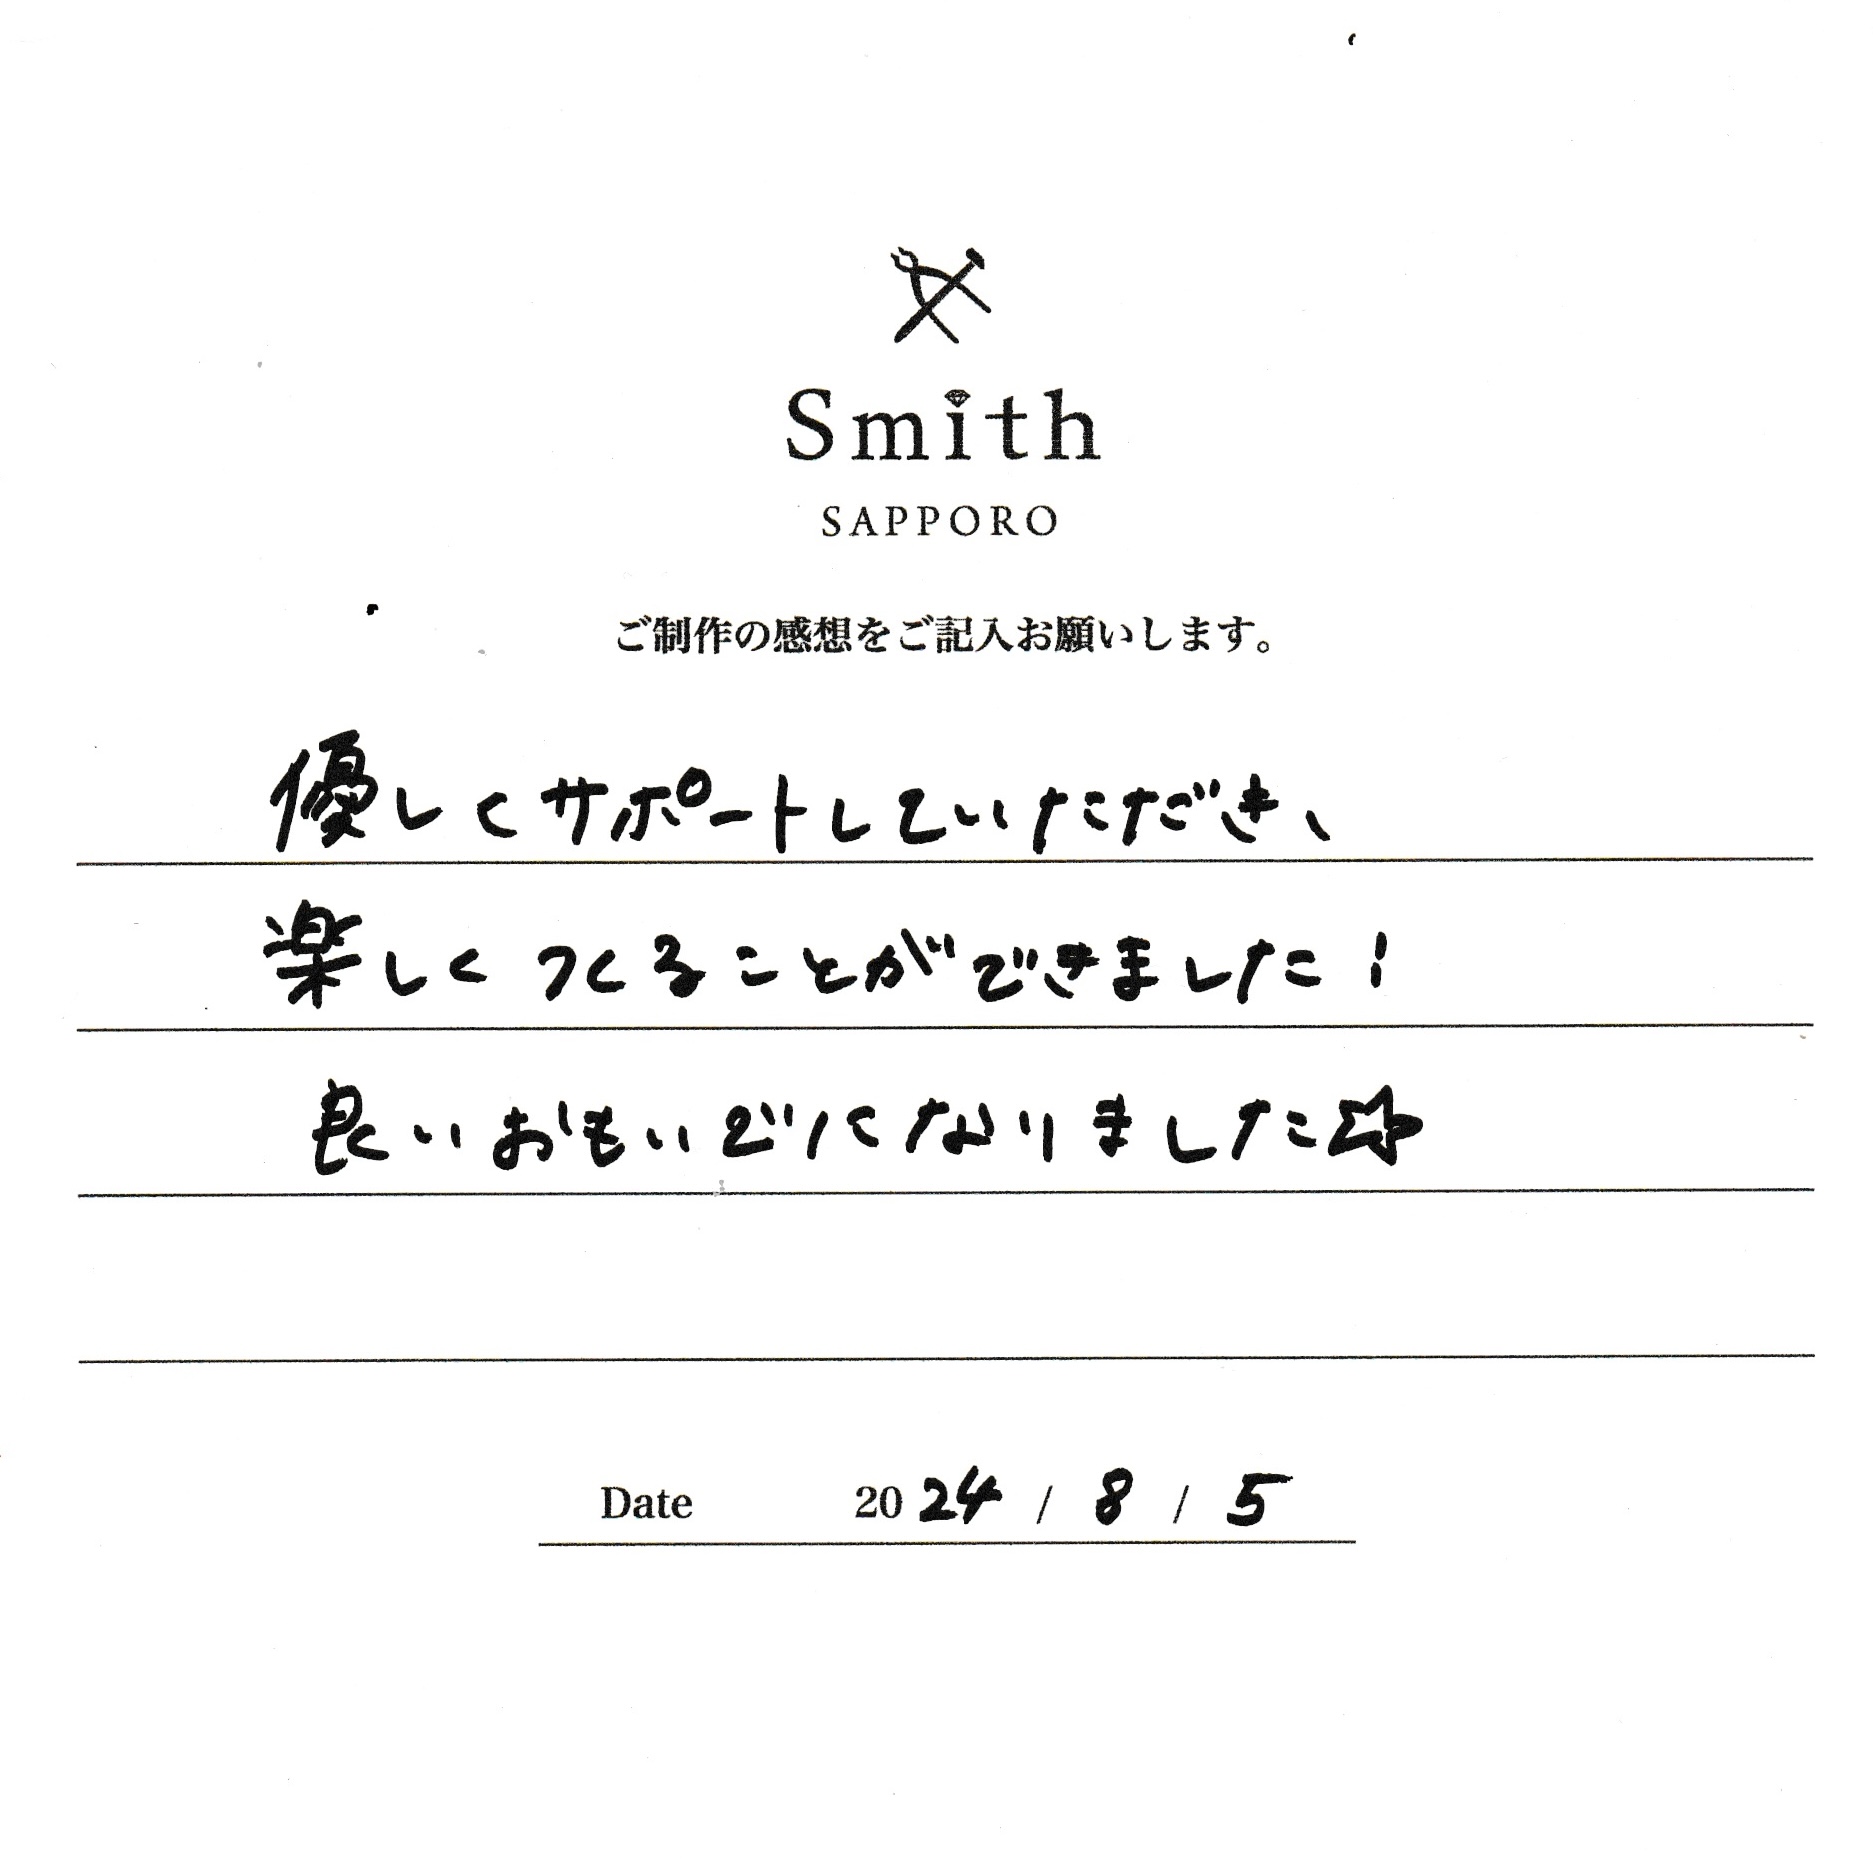 Smith
SAPPORO
ご制作の感想をご記入お願いします。
優しくサポートしていただき、
楽しくつくることができました!
良いおもいでになりました☆
Date 2024 / 8 / 5